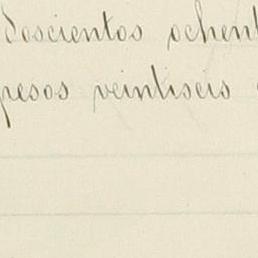 doscientos ochent
pesos veintiseis